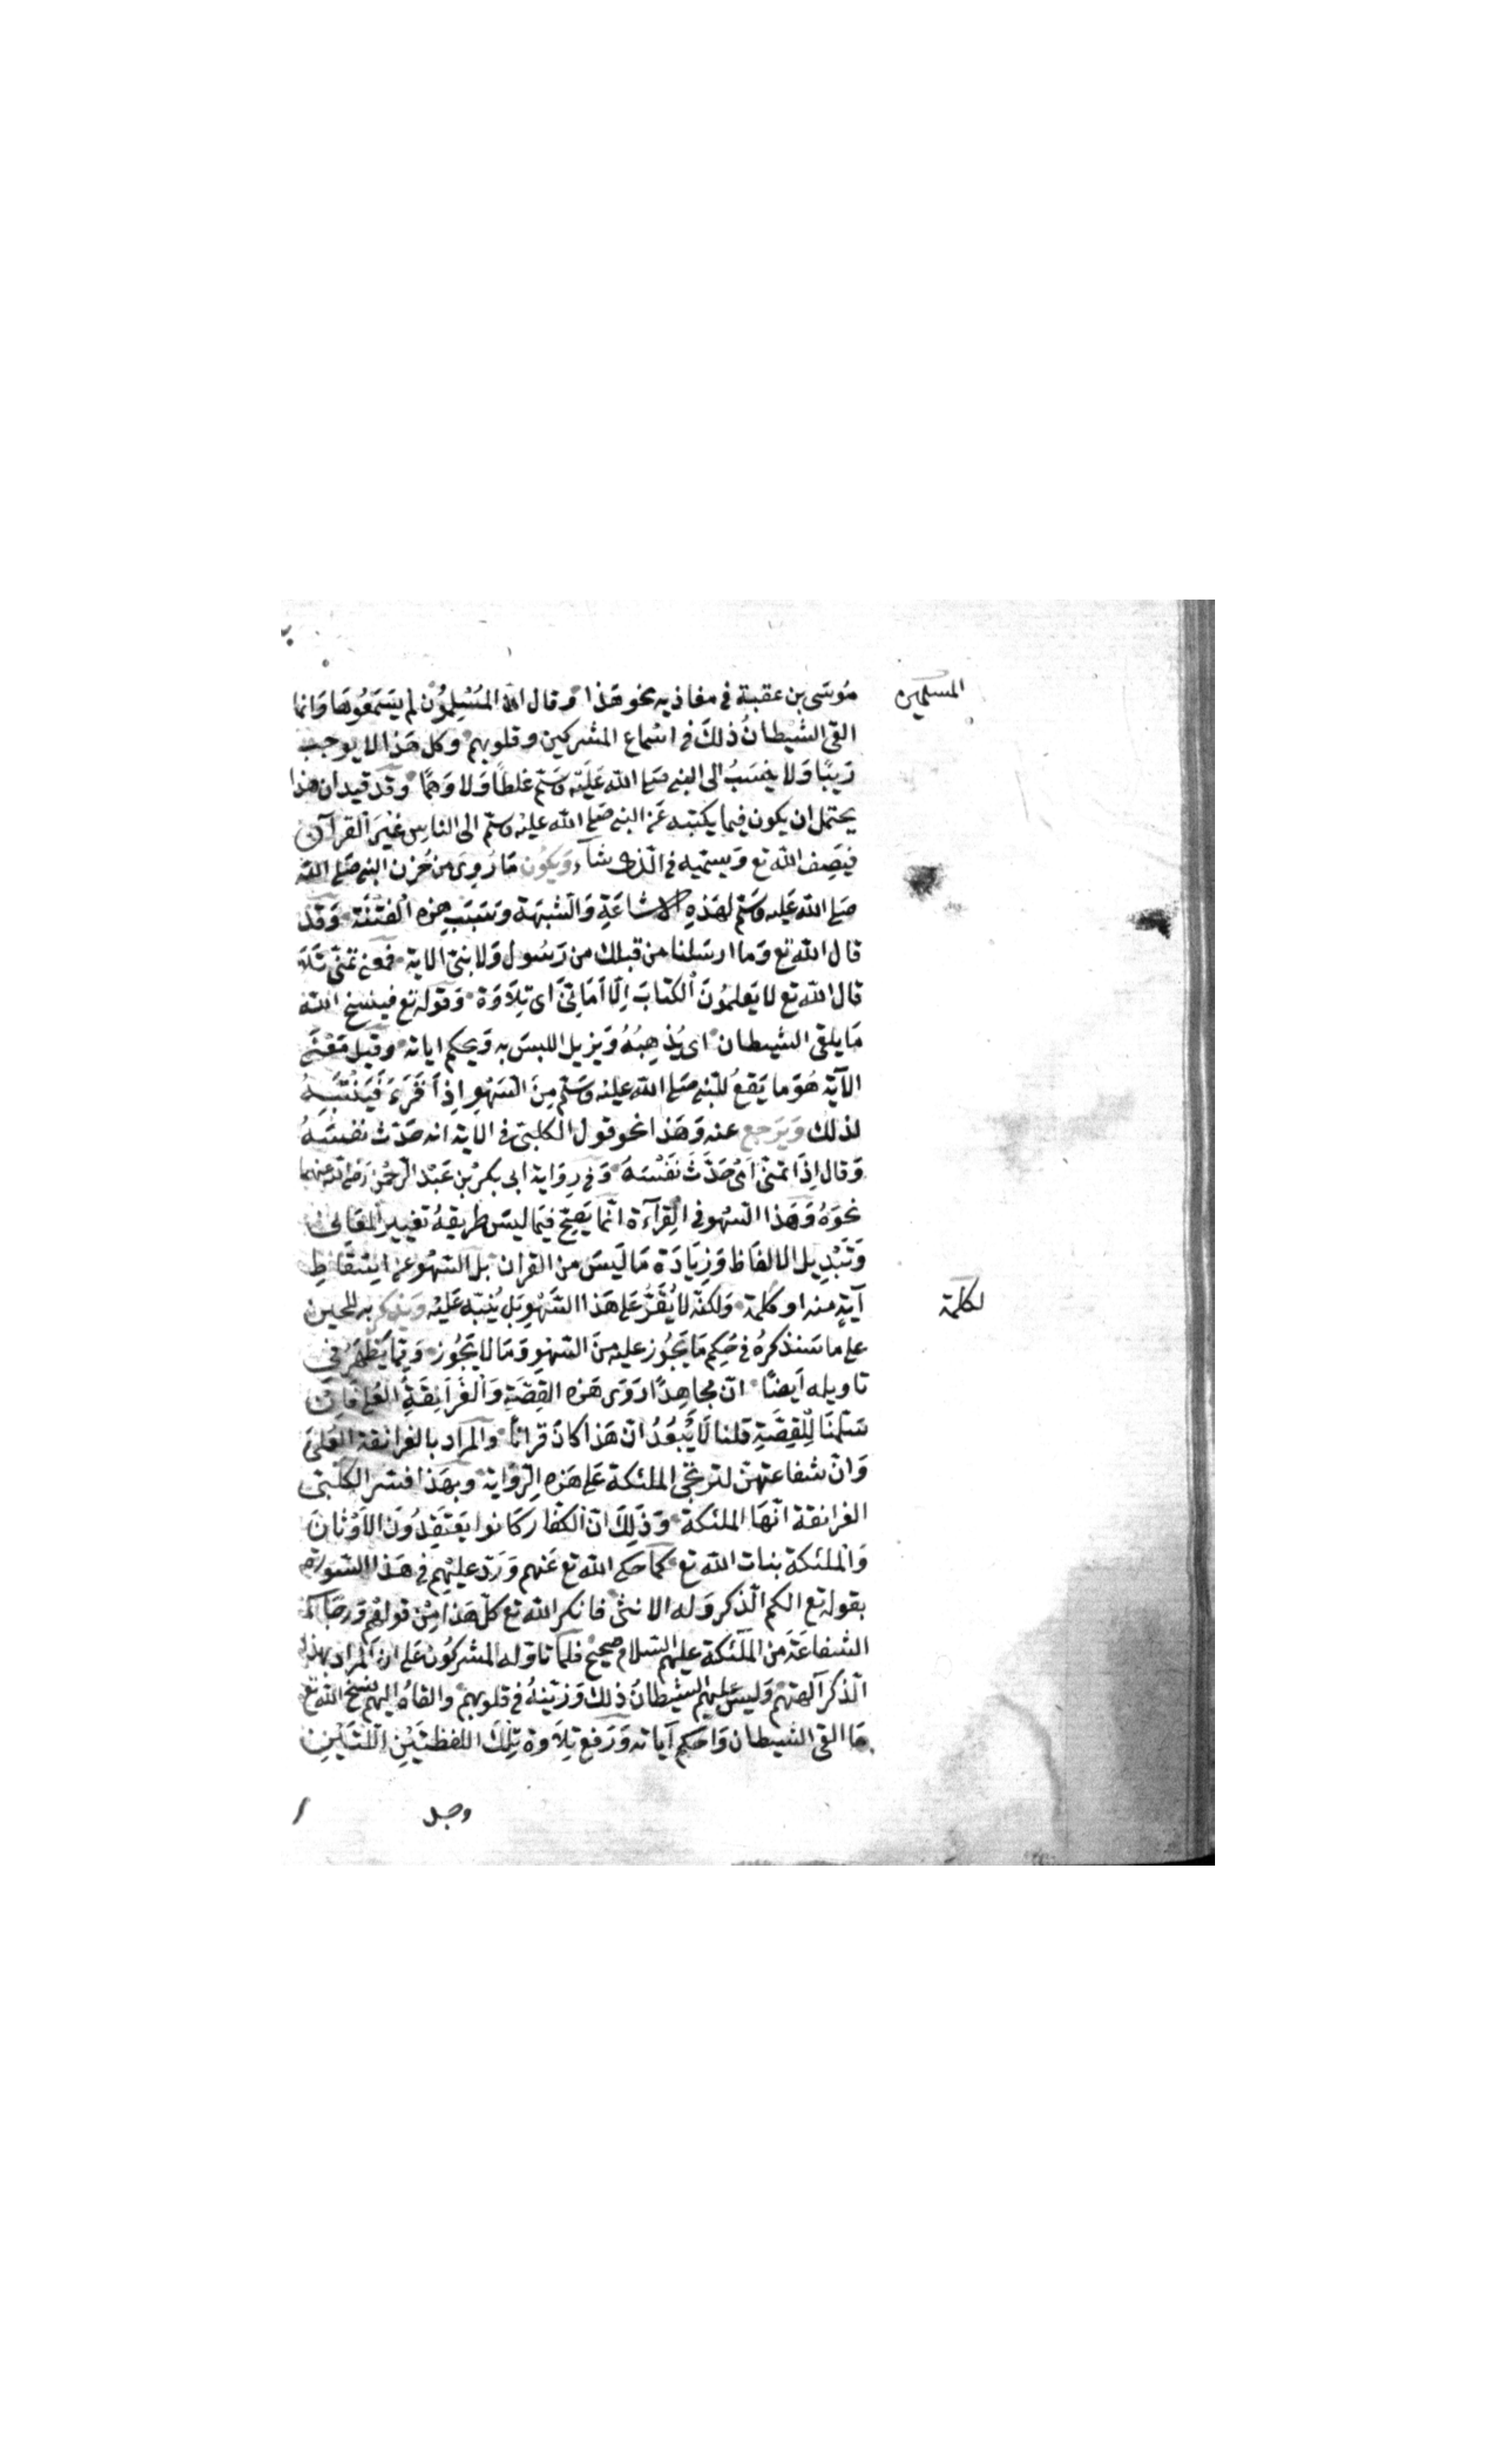 مُوسَى بن عقبة فى مغازيه نحو هَذا وقال انّ المُسْلِمُون لم يَسْمَعُوهَا وَانما
المسلمين
القى الشيْطانُ ذلكَ فى اسْماع المشركين وقلوبهم وكل هَذا لا يوجب
رَيبًا وَلا ينسَبُ الى النبى صَلى الله عَليْه وسَلم غلطًا وَلا وَهمًا وقد قيد ان هذا
يحتمل ان يكون فيما يكتبه عَن النبى صَلى الله عليْه وسلم الى الناسِ غيْرَ القرآن
فيَصِف الله تع وَيسمّيه فى الذى شآء وَيكُون مَا رُوِىَ من حُزن النبى صَلى الله
صَلى الله عَليه وسَلم لهَذِهِ الاشاعَةِ وَالشبهَة وَسَبَب هزه الفتنَة وَقد
قال الله تع وَما ارسَلنا من قبلك من رَسُول وَلا نبىّ الاية فمعنى تمنّى تَلَا
قال الله تع لا يَعلمُونَ الكتابَ اِلّا اَمَانِىَّ اى تِلَاوَة وَقوله تع فينسخ الله
مَا يلقى الشيطان اى يُذهِبُهُ وَيزيل اللبسَ به وَيحكم اياته وقيل مَعْنى
الآية هُوَ ما يَقعُ للنبى صَلى الله عليْه وسَلم مِنَ السَهْوِ اِذا قَرَءَ فَيَنْتَبِهُ
لذلك وَيَرجع عنه وَهَذا نحو قول الكلبى فى الاية انه حَدّث نفسَهُ
وَقال اِذا تمنّى اَىْ حَدَّثَ نَفْسَهُ وَفى رِوَاية ابى بكرْ بن عَبْد الرّحمٰن رَضى الله عنهما
نحوَهُ وَهَذا السّهْو فى القِرآءَة انّما يَصِحّ فيمَا ليسَ طريقهُ تغيير المعَانى
وَتَبْدِيل الالفاظ وَزِيَادَة مَا لَيسَ من القران بل السّهْوُ عَن اِسْقَاطِ
آيةٍ منه او كلمة وَلكنّه لا يُقَرّ عَلى هَذا السّهْوِ بَل يُنبّه عَليْه وَيذكر به للحين
لكلمة
على ما سَنذكرهُ فى حُكِم مَا يَجُوز عليه مِنَ السّهْوِ وَمَا لا يَجُوز وَمِمّا يَظهَرُ فى
تاويله اَيضًا انّ مجاهِدًا رَوَى هَزه القِصّة وَالغَرَانِقَةُ العُلَى فَاِن
سَلّمنَا لِلقِصَّةِ قلنا لَا يُبْعَدُ انّ هَذا كانَ قرانًا والمراد بالغرَانقة العُلَى
وَانّ شفاعتهنّ لترتجى الملئكة عَلى هَزه الرِّوَاية وبهَذا فسّر الكَلْبى
الغرانقة انّهَا الملئكة وَذَلِكَ انّ الكفار كَانوا يَعتقِدُونَ الاَوْثانَ
وَالملئكة بنات الله تع كما حَكى الله تع عَنهم وَرَدّ عليْهِم فى هَذا السّورَة
بقوله تع الكم الذكر وَله الانثى فانكر الله تع كلّ هَذا مِنْ قولهم وَرجَاءُ
الشفاعَة مَن الملَئكة عليهِم السّلام صحِيح فلمّا تاوّله المشركُون عَلى انّ المراد بهذا
الذكر آلهتهم وَلبس عليهم الشيطانُ ذلك وَزيّنهُ فى قلوبهم والقاهُ اليهم نسخ الله تع
مَا القى الشيطان وَاحكم آياته وَرَفع تِلَاوة تِلكَ اللفظتَيْنِ اللتَيْنِ
وجل